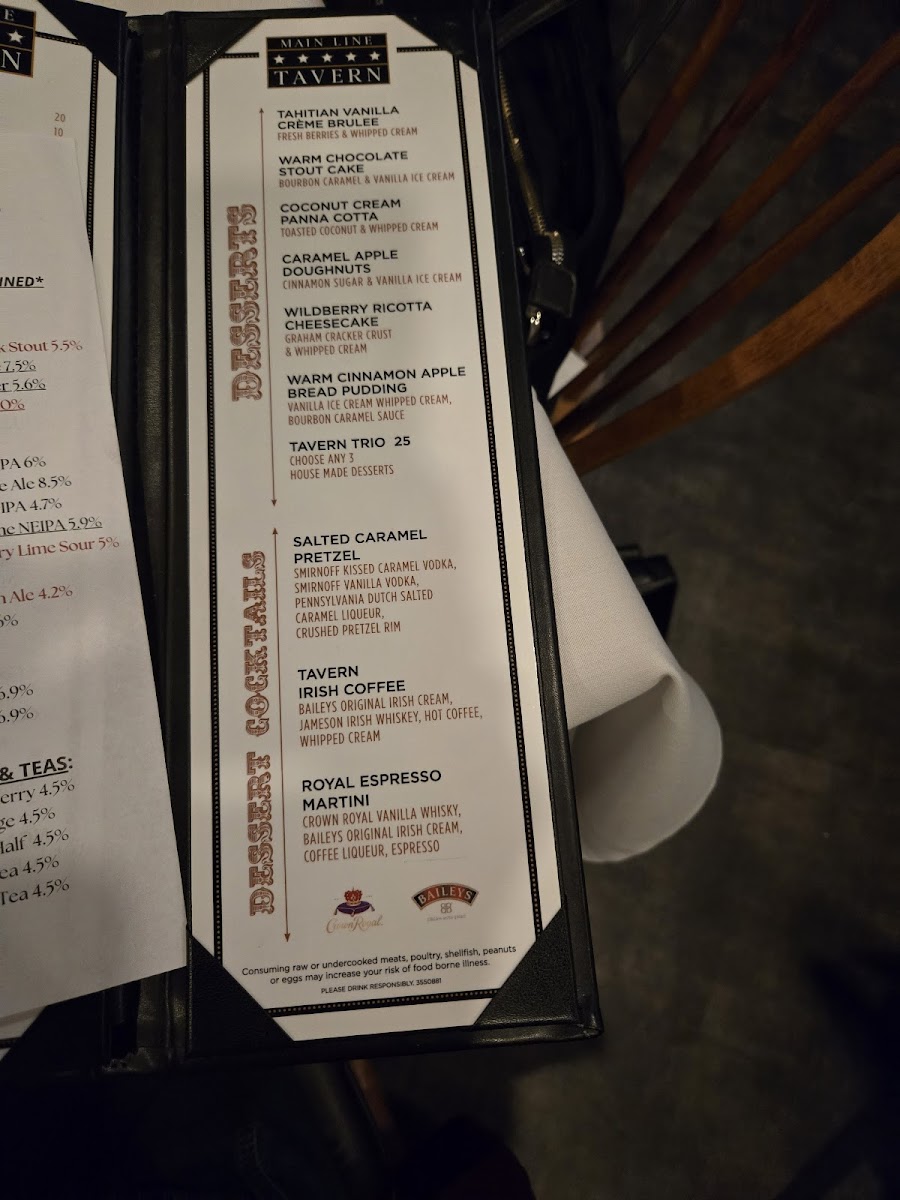 E
N
20
10
INED*
k Stout 5.5%
7.5%
er 5.6%
0%
PA 6%
e Ale 8.5%
IPA 4.7%
ne NEIPA 5.9%
ry Lime Sour 5%
n Ale 4.2%
5.9%
5.9%
& TEAS:
erry 4.5%
ge 4.5%
Half 4.5%
ea 4.5%
Tea 4.5%
MAIN LINE
TAVERN
DESSERTS
TAHITIAN VANILLA
CRÈME BRULEE
FRESH BERRIES & WHIPPED CREAM
WARM CHOCOLATE
STOUT CAKE
BOURBON CARAMEL & VANILLA ICE CREAM
COCONUT CREAM
PANNA COTTA
TOASTED COCONUT & WHIPPED CREAM
CARAMEL APPLE
DOUGHNUTS
CINNAMON SUGAR & VANILLA ICE CREAM
WILDBERRY RICOTTA
CHEESECAKE
GRAHAM CRACKER CRUST
& WHIPPED CREAM
WARM CINNAMON APPLE
BREAD PUDDING
VANILLA ICE CREAM WHIPPED CREAM,
BOURBON CARAMEL SAUCE
TAVERN TRIO 25
CHOOSE ANY 3
HOUSE MADE DESSERTS
DESSERT COCKTAILS
SALTED CARAMEL
PRETZEL
SMIRNOFF KISSED CARAMEL VODKA,
SMIRNOFF VANILLA VODKA,
PENNSYLVANIA DUTCH SALTED
CARAMEL LIQUEUR,
CRUSHED PRETZEL RIM
TAVERN
IRISH COFFEE
BAILEYS ORIGINAL IRISH CREAM,
JAMESON IRISH WHISKEY, HOT COFFEE,
WHIPPED CREAM
ROYAL ESPRESSO
MARTINI
CROWN ROYAL VANILLA WHISKY,
BAILEYS ORIGINAL IRISH CREAM,
COFFEE LIQUEUR, ESPRESSO
Crown Royal
BAILEYS
Consuming raw or undercooked meats, poultry, shellfish, peanuts
or eggs may increase your risk of food borne illness.
PLEASE DRINK RESPONSIBLY. 3550881